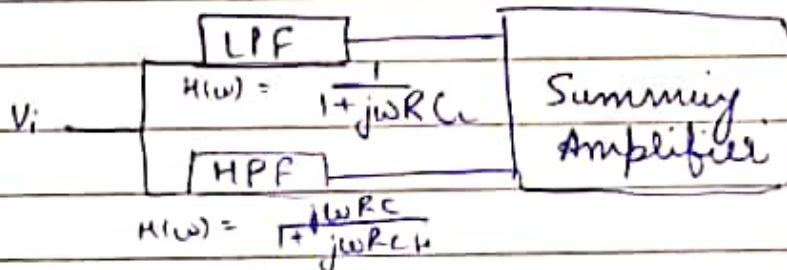 LPF
H(ω) = 1/(1+jωRC
Vi
Summing
Amplifier
HPF
H(ω) = jωRC/(1+jωRCH